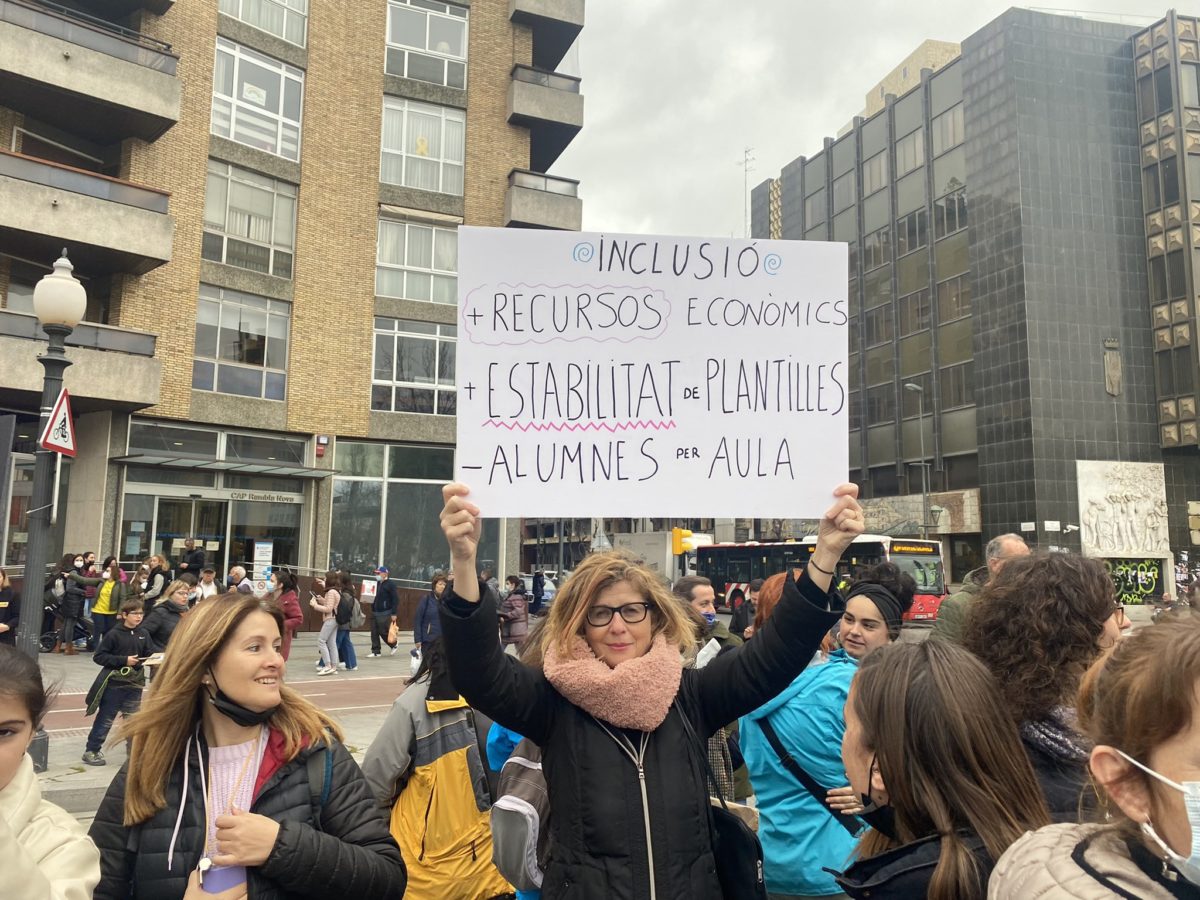 INCLUSIÓ
+ RECURSOS ECONÒMICS
+ ESTABILITAT DE PLANTILLES
- ALUMNES PER AULA
CAP Rambla Nova